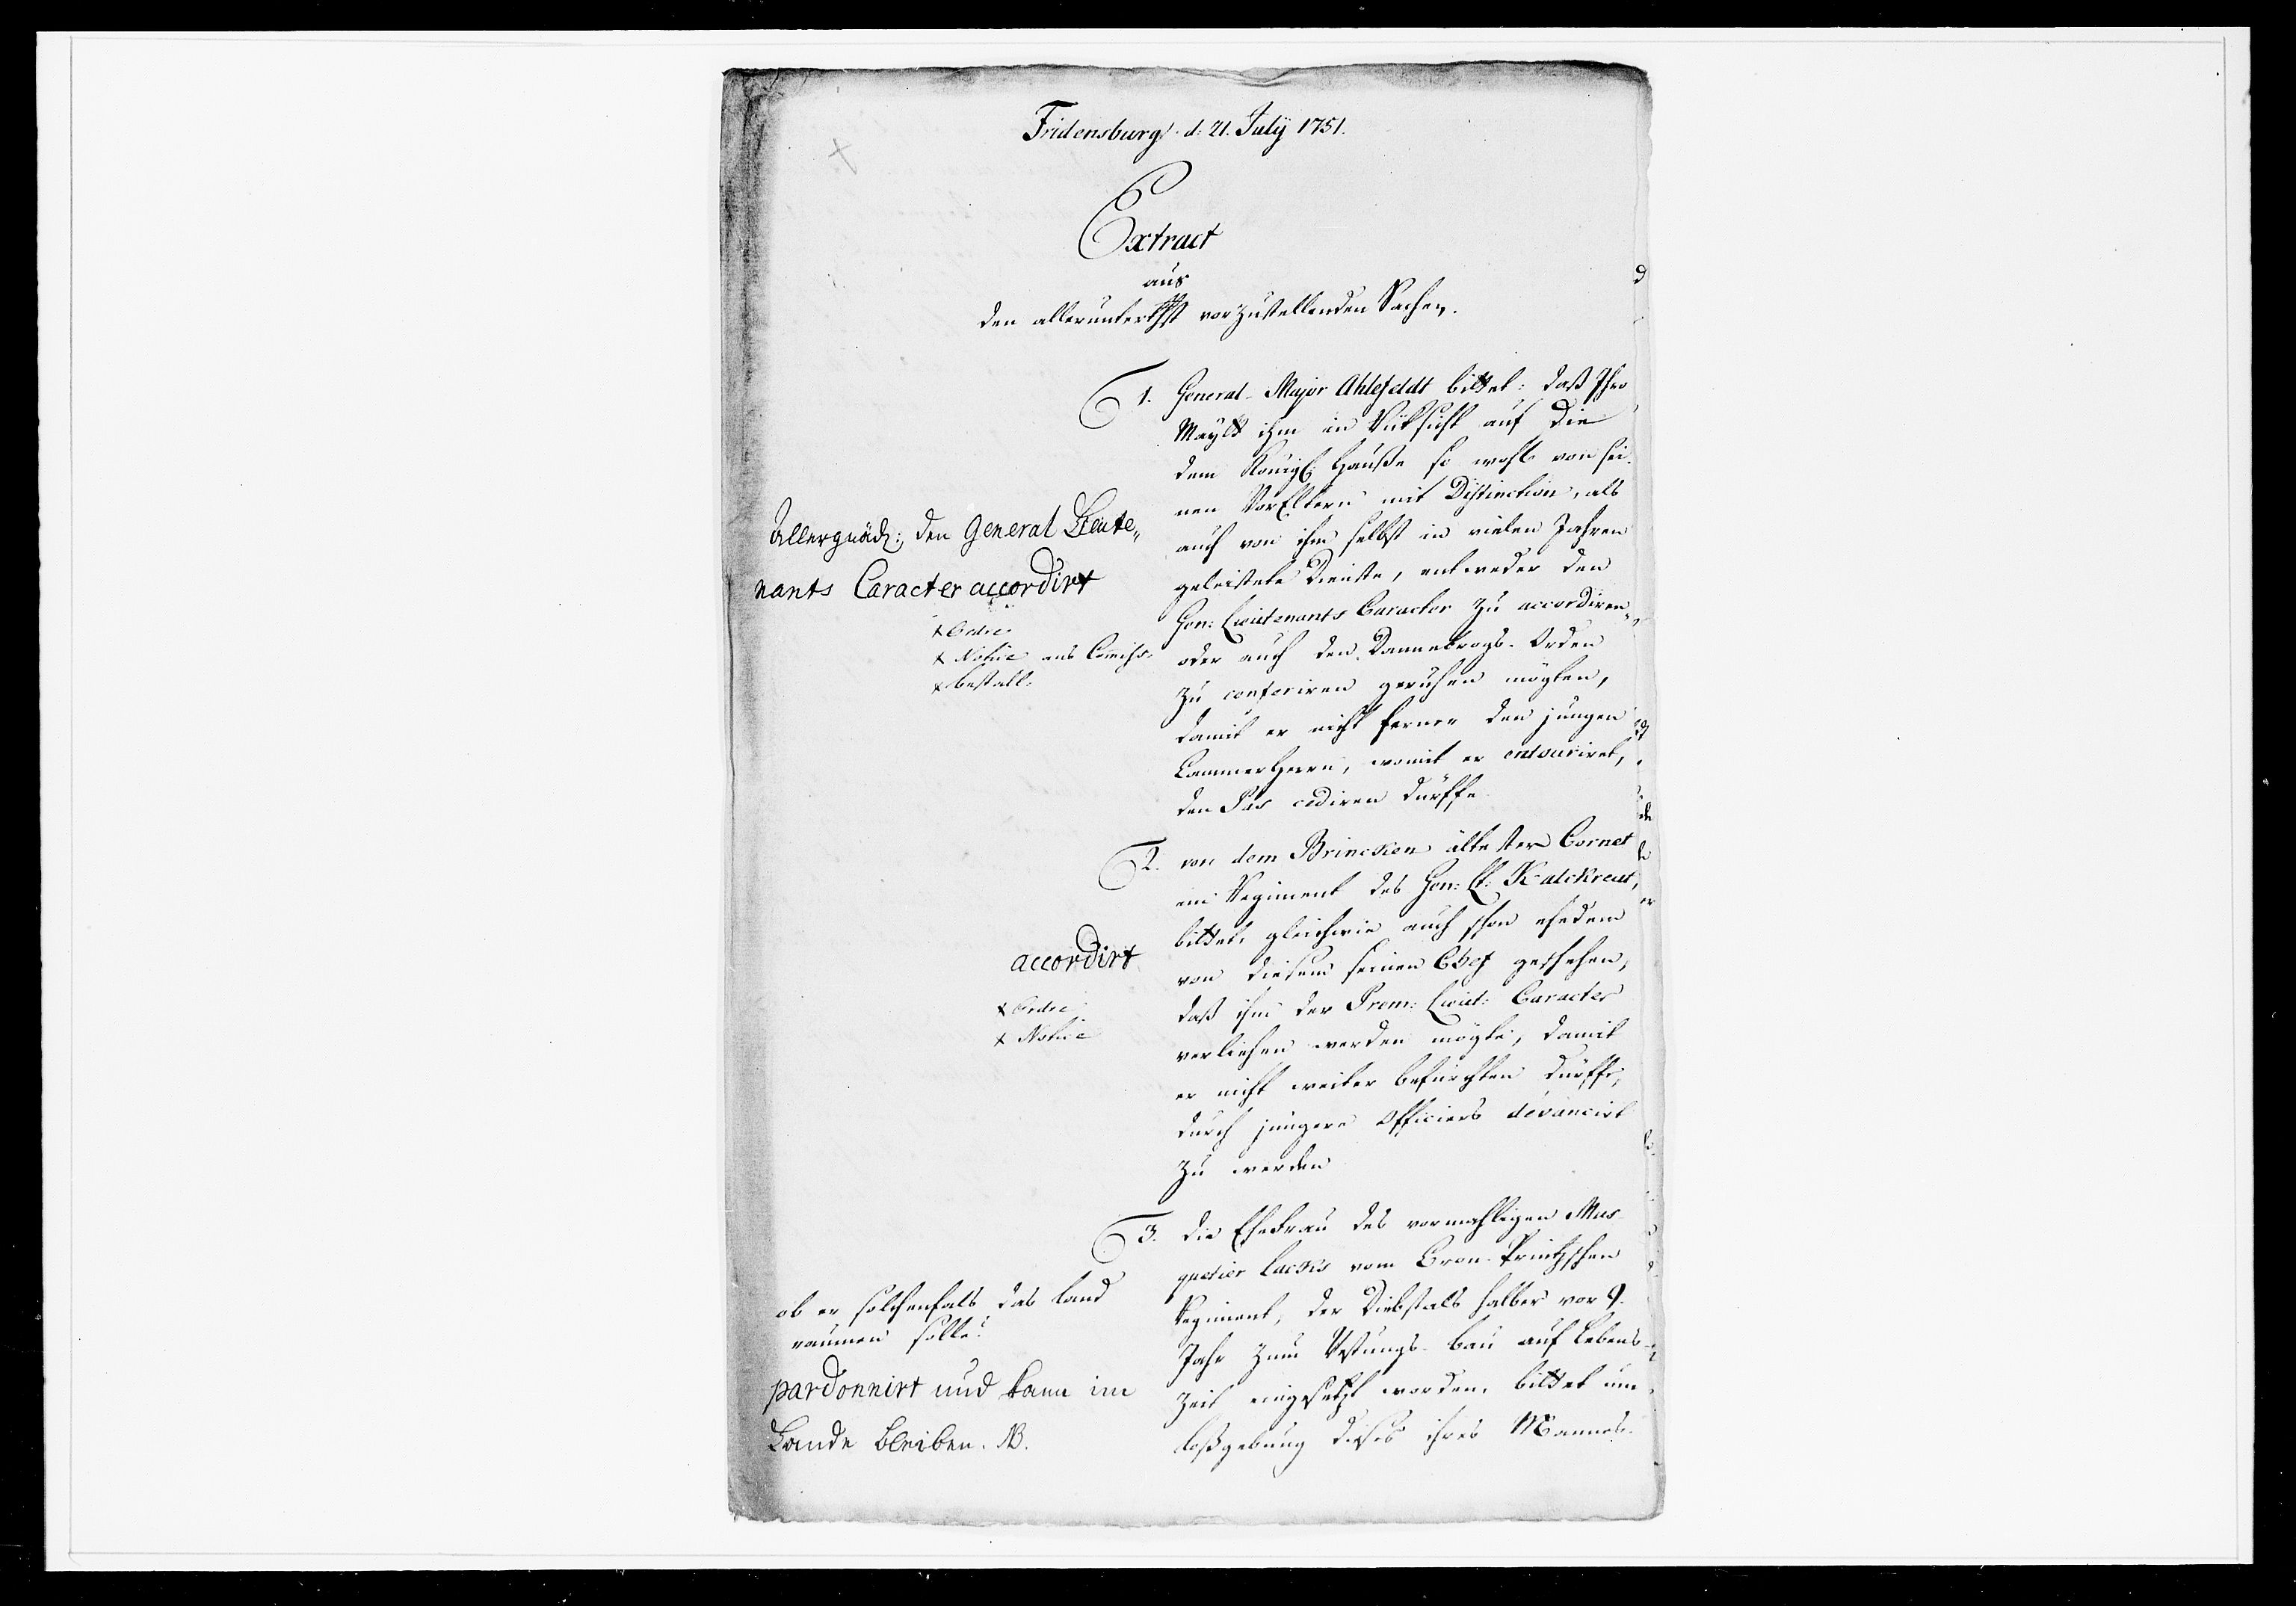 Fridensburg d: 21. July 1751.
Extract
aus
den allerunterthst vorzustellenden Sachen.
1. General-Major Ahlefeldt bittet: daß Ihro
Maytt ihm in Rüksicht auf die
dem Königl: Hauße so wohl von sei-
nen VorEltern mit Distinction, als
auch von ihm selbst in vielen Jahren
geleistete Dienste, entweder den
Gen: Lieutenants Caracter zu accordiren,
oder auch den Dannebrogs-Orden
zu conferiren geruhen mögten,
damit er nicht ferner den jungen
CammerHerrn, womit er entouriret,
den Pas cediren dürffe.
Allergnäd: den General Lieute„
nants Caracter accordirt
x Ordre
x Notice ans Commiss.
x bestall:
2. von dem Brincken ältester Cornet
im Regiment des Gen: Lt: Kalckreut,
bittet, gleichwie auch schon ehedem
von diesem seinen Chef geschehen,
daß ihm der Prem: Lieut: Caracter
verliehen werden mögte, damit
er nicht weiter befürchten dürffe,
durch jüngere Officiers devancirt
zu werden
accordirt
x Ordre
x Notice
3. die Ehefrau des vormahligen Mus-
quetier Lackis vom Cron-Printzschen
Regiment, der Diebstals halber vor 9.
Jahr zum Vestungs-bau auf Lebens-
zeit eingesetzt worden, bittet um
loßgebung dieses ihres Mannes.
ob er solchenfals das Land
raumen solle?
pardonnirt und kann im
Lande bleiben. NB.